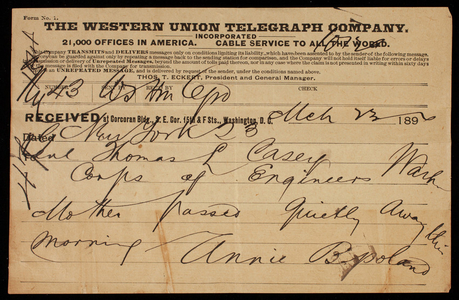 Form No. 1.
THE WESTERN UNION TELEGRAPH COMPANY.
INCORPORATED
21,000 OFFICES IN AMERICA. CABLE SERVICE TO ALL THE WORLD.
This Company TRANSMITS and DELIVERS messages only on conditions limiting its liability, which have been assented to by the sender of the following message.
Errors can be guarded against only by repeating a message back to the sending station for comparison, and the Company will not hold itself liable for errors or delays
in transmission or delivery of Unrepeated Messages, beyond the amount of tolls paid thereon, nor in any case where the claim is not presented in writing within sixty days
after the message is filed with the Company for transmission.
This is an UNREPEATED MESSAGE, and is delivered by request of the sender, under the conditions named above.
THOS. T. ECKERT, President and General Manager.
NUMBER CHECK
RECEIVED at Corcoran Bldg., S. E. Cor. 15th & F Sts., Washington, D. C. Mch 23 1892
Dated New York 23
To Genl Thomas L Casey
Corps of Engineers Wash
Mother passed quietly away this
morning Annie B